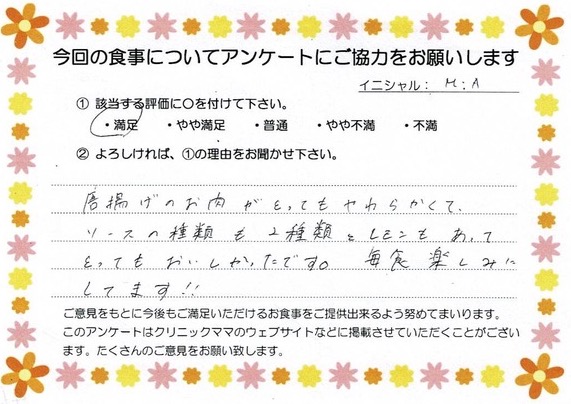 今回の食事についてアンケートにご協力をお願いします
イニシャル： M:A
① 該当する評価に〇を付けて下さい。
・満足 ・やや満足 ・普通 ・やや不満 ・不満
② よろしければ、①の理由をお聞かせ下さい。
唐揚げのお肉がとってもやわらかくて、
ソースの種類も2種類とレモンもあって
とってもおいしかったです。 毎食楽しみに
してます!!
ご意見をもとに今後もご満足いただけるお食事をご提供出来るよう努めてまいります。
このアンケートはクリニックママのウェブサイトなどに掲載させていただくことがござい
ます。たくさんのご意見をお願い致します。